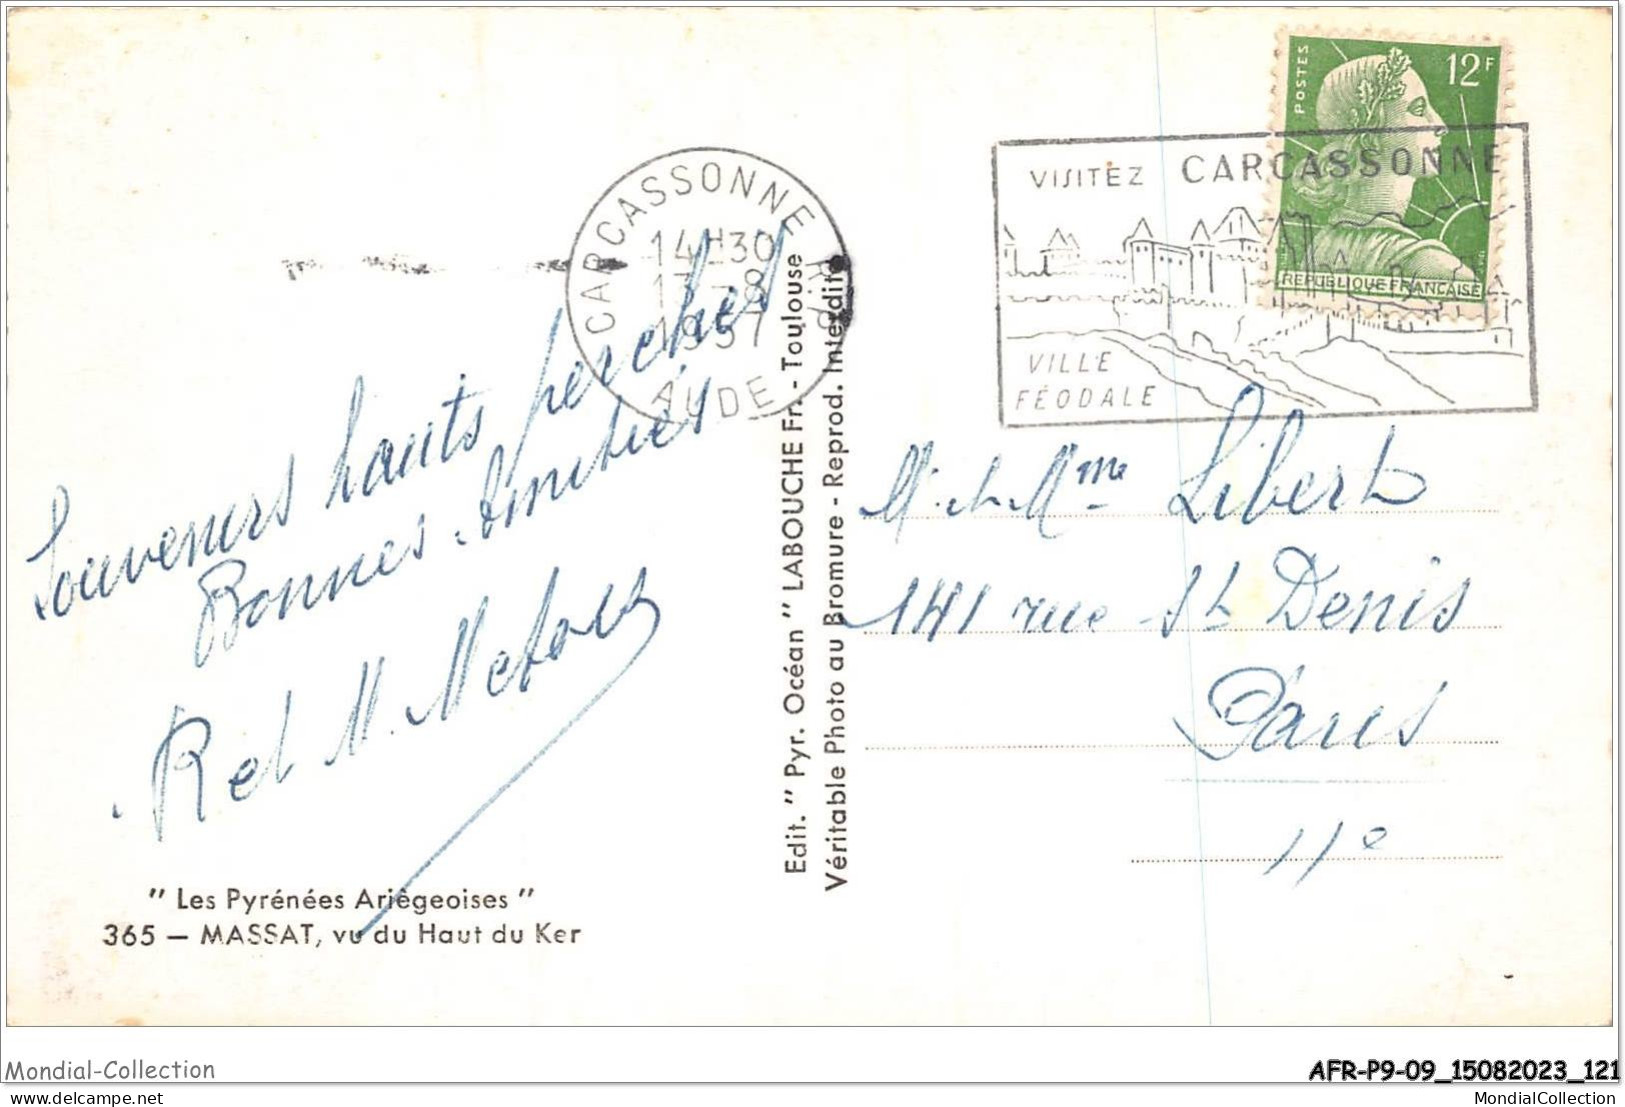 POSTES
12F
REPUBLIQUE FRANCAISE
CARCASSONNE R.P.
14H30
13-8
1957
AUDE
VISITEZ CARCASSONNE
VILLE
FÉODALE
Souvenirs hauts perchés
Bonnes Amitiés
R et M.
M. et Mme Libert
141 rue St Denis
Paris
11e
Edit. " Pyr. Océan " LABOUCHE Fr. - Toulouse
Véritable Photo au Bromure - Reprod. Interdite
" Les Pyrénées Ariègeoises "
365 — MASSAT, vu du Haut du Ker
Mondial-Collection
AFR-P9-09_15082023_121
delcampe.net
MondialCollection